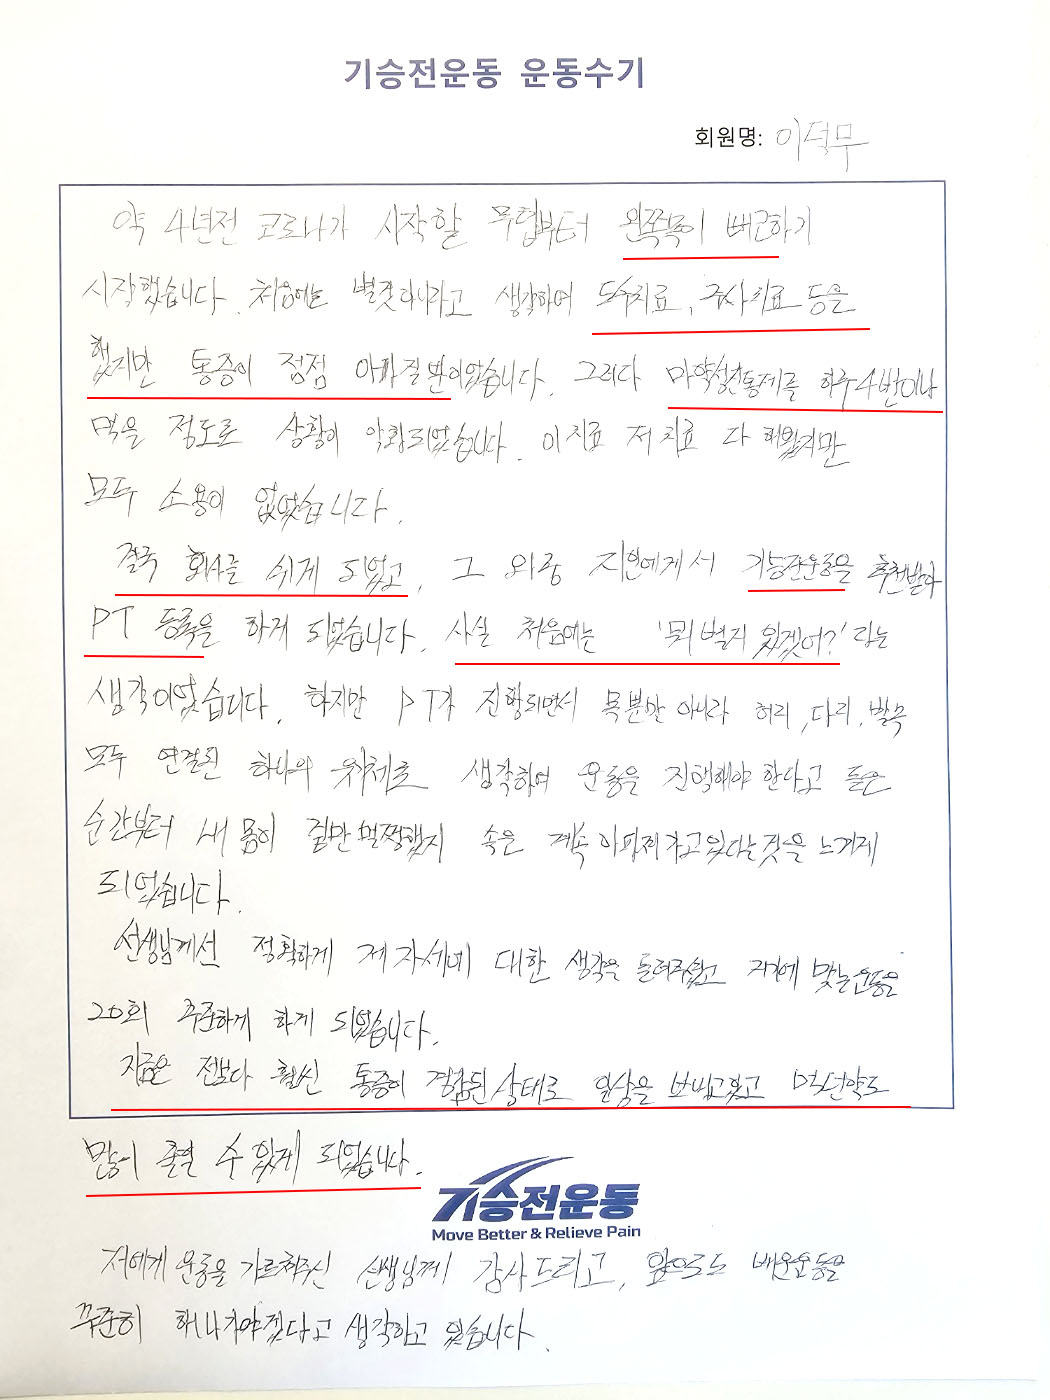 기승전운동 운동수기
회원명: 이덕무
약 4년전 코로나가 시작할 무렵부터 왼쪽목이 뻐근하기
시작했습니다. 처음에는 별것아니라고 생각하여 도수치료, 주사치료 등을
했지만 통증이 점점 아파질뿐이었습니다. 그러다 마약성진통제를 하루4번이나
먹을 정도로 상황이 악화되었습니다. 이치료 저치료 다 해봤지만
모두 소용이 없었습니다.
결국 회사를 쉬게 되었고, 그 와중 지인에게서 기승전운동을 추천받아
PT 등록을 하게 되었습니다. 사실 처음에는 '뭐 별거 있겠어?' 라는
생각이었습니다. 하지만 PT가 진행되면서 목뿐만 아니라 허리, 다리, 발목
모두 연결된 하나의 유기체로 생각하여 운동을 진행해야 한다고 듣은
순간부터 내 몸이 겉만 멀쩡했지 속은 계속 아파져가고있다는것을 느끼게
되었습니다.
선생님께선 정확하게 제 자세에 대한 생각을 들려주셨고 저에게 맞는운동을
20회 꾸준하게 하게 되었습니다.
지금은 전보다 훨씬 통증이 경감된상태로 일상을 보내고있고 먹던약도
많이 줄일 수 있게 되었습니다.
기승전운동
Move Better & Relieve Pain
저에게 운동을 가르쳐주신 선생님께 감사드리고, 앞으로도 배운운동을
꾸준히 해나가야겠다고 생각하고 있습니다.